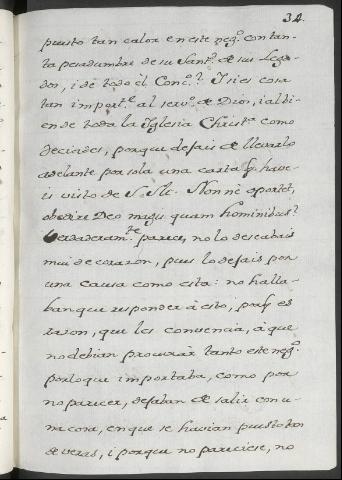 34.
puesto tan calor en este neg.º con tan-
ta pesadumbre de su Sant.d de sus Lega-
dos, i de todo el Conc.º? I si es cosa
tan import.te al serv.º de Dios, i al bi-
en de toda la Iglesia Christ.a como
decíades, porque dejais de llevarlo
adelante por sola una carta q have-
is visto de S. Sd. Nonne oportet,
obedire Deo magis quam hominibus?
Verdaderam.te parece, no lo deseabais
mui de corazon, pues lo dejais por
una causa como esta: no halla-
ban que responder à esto, porq es
razon, que les convencía, à que
no debian procurar tanto este neg.º
por lo que importaba, como por
no parecer, dejaban de salir con u-
na cosa, en que se havian puesto tan
de veras, i porque no pareciese, no